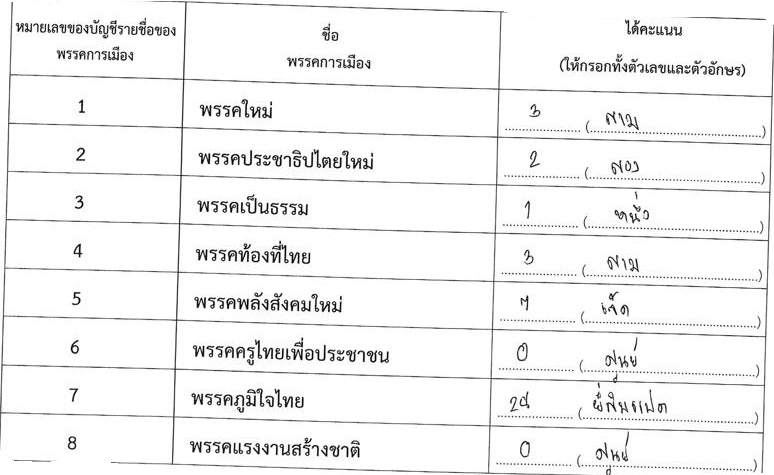 หมายเลขของบัญชีรายชื่อของ
พรรคการเมือง
ชื่อ
พรรคการเมือง
ได้คะแนน
(ให้กรอกทั้งตัวเลขและตัวอักษร)
1 พรรคใหม่ 3 (สาม)
2 พรรคประชาธิปไตยใหม่ 2 (สอง)
3 พรรคเป็นธรรม 1 (หนึ่ง)
4 พรรคท้องที่ไทย 3 (สาม)
5 พรรคพลังสังคมใหม่ 7 (เจ็ด)
6 พรรคครูไทยเพื่อประชาชน 0 (ศูนย์)
7 พรรคภูมิใจไทย 28 (ยี่สิบแปด)
8 พรรคแรงงานสร้างชาติ 0 (ศูนย์)